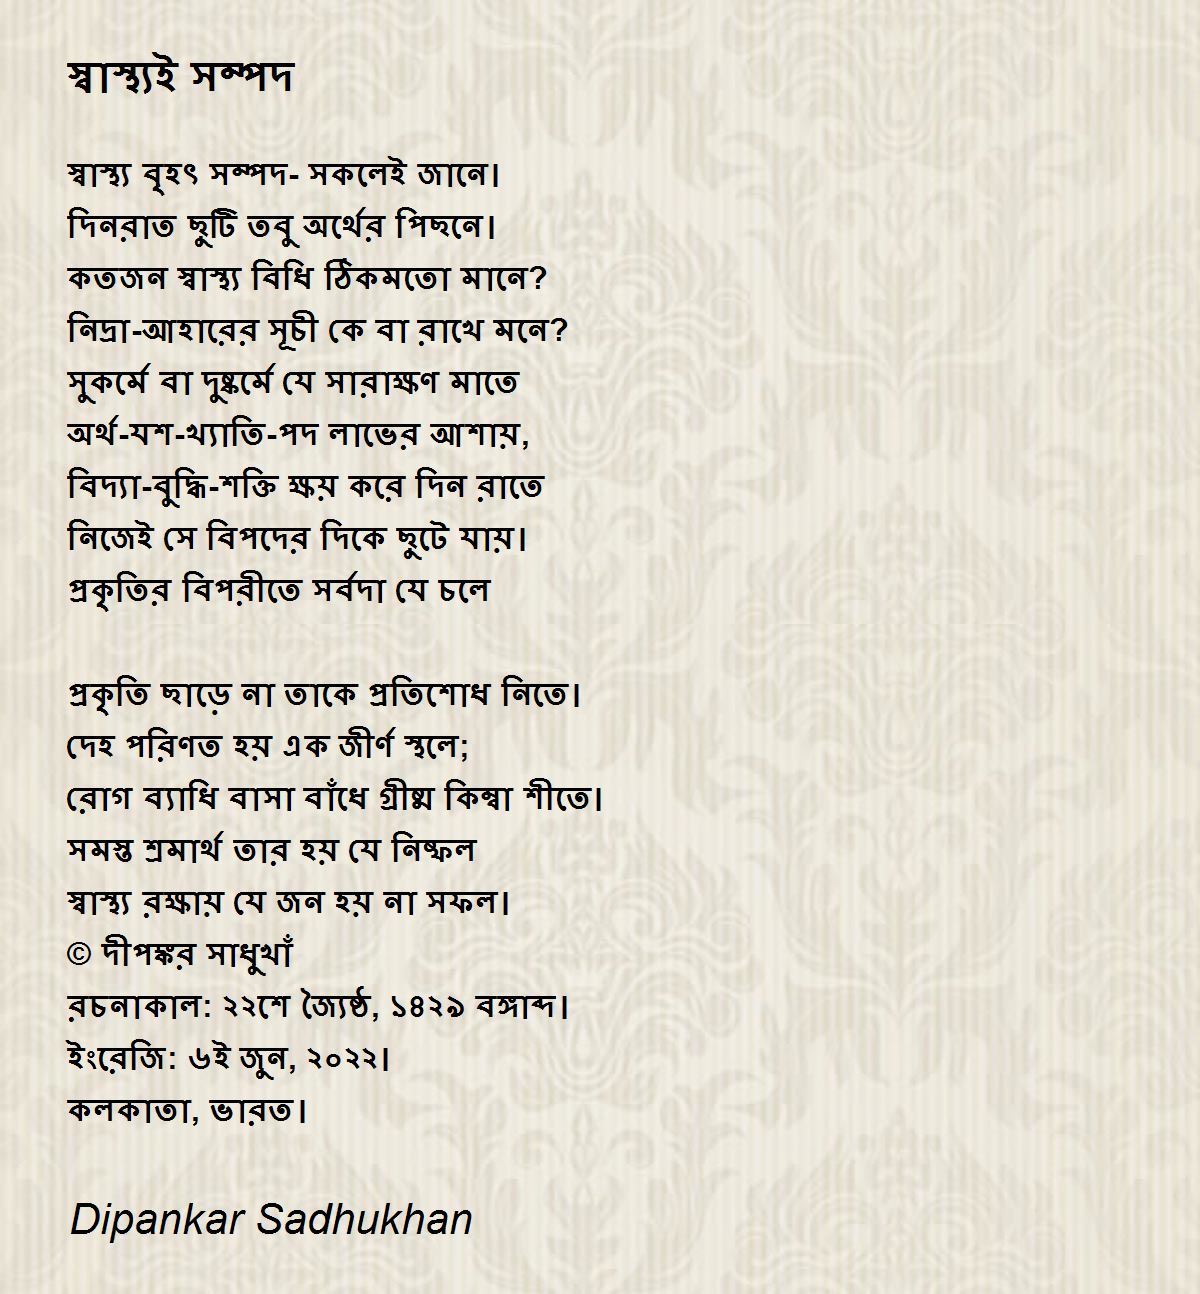 স্বাস্থ্যই সম্পদ
স্বাস্থ্য বৃহৎ সম্পদ- সকলেই জানে।
দিনরাত ছুটি তবু অর্থের পিছনে।
কতজন স্বাস্থ্য বিধি ঠিকমতো মানে?
নিদ্রা-আহারের সূচী কে বা রাখে মনে?
সুকর্মে বা দুষ্কর্মে যে সারাক্ষণ মাতে
অর্থ-যশ-খ্যাতি-পদ লাভের আশায়,
বিদ্যা-বুদ্ধি-শক্তি ক্ষয় করে দিন রাতে
নিজেই সে বিপদের দিকে ছুটে যায়।
প্রকৃতির বিপরীতে সর্বদা যে চলে
প্রকৃতি ছাড়ে না তাকে প্রতিশোধ নিতে।
দেহ পরিণত হয় এক জীর্ণ স্থলে;
রোগ ব্যাধি বাসা বাঁধে গ্রীষ্ম কিম্বা শীতে।
সমস্ত শ্রমার্থ তার হয় যে নিষ্ফল
স্বাস্থ্য রক্ষায় যে জন হয় না সফল।
© দীপঙ্কর সাধুখাঁ
রচনাকাল: ২২শে জ্যৈষ্ঠ, ১৪২৯ বঙ্গাব্দ।
ইংরেজি: ৬ই জুন, ২০২২।
কলকাতা, ভারত।
Dipankar Sadhukhan